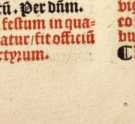 cū. Per dñm.
festum in qua-
atur/fit officiū
ctyrum.
vig
eo
bu